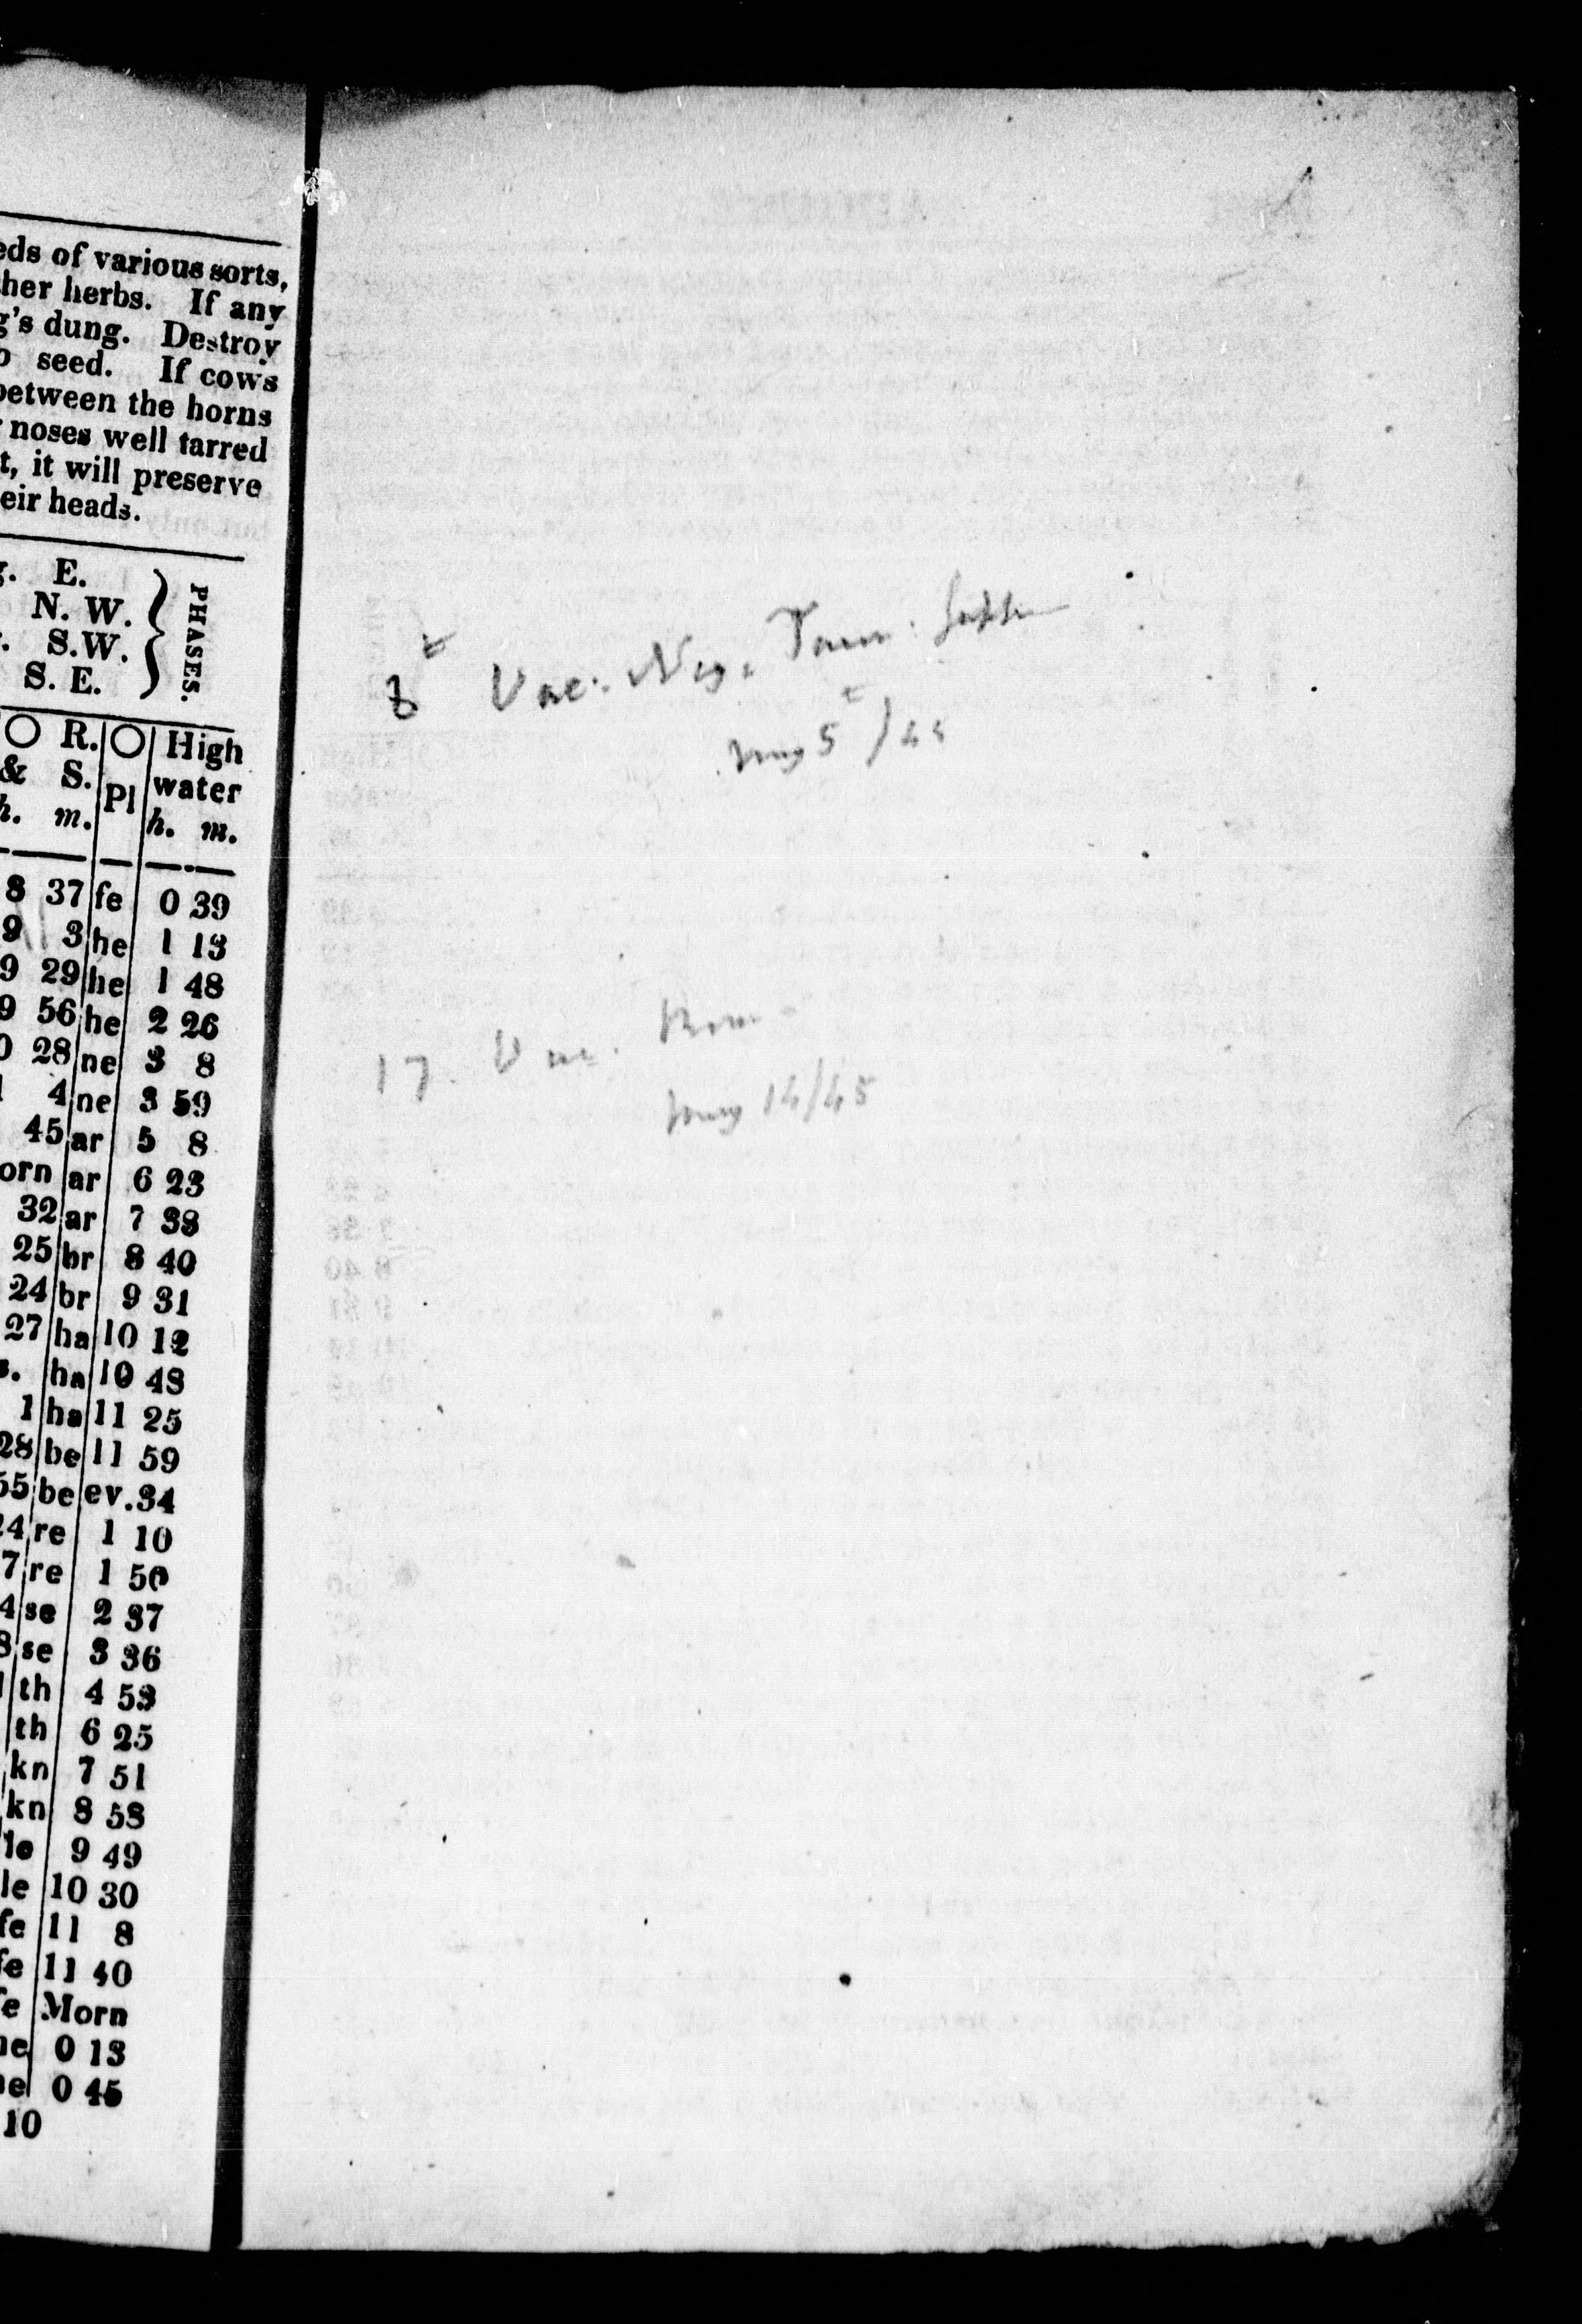 eds of various sorts,
ther herbs. If any
g's dung. Destroy
o seed. If cows
between the horns
noses well tarred
t, it will preserve
eir heads.
g. E.
N. W.
S.W.
S. E.
PHASES.
R. High
& S. Pl water
h. m. h. m.
8 37 fe 0 39
9 3 he 1 13
9 29 he 1 48
9 56 he 2 26
0 28 ne 3 8
4 ne 3 59
45 ar 5 8
orn ar 6 23
32 ar 7 38
25 br 8 40
24 br 9 31
27 ha 10 12
s. ha 10 48
1 ha 11 25
28 be 11 59
55 be ev.34
24 re 1 10
7 re 1 50
4 se 2 37
8 se 3 36
th 4 53
th 6 25
kn 7 51
kn 8 58
le 9 49
le 10 30
fe 11 8
fe 11 40
fe Morn
ne 0 13
ne 0 45
10
8 Vac.
5 /44
17. Vac.
14/45